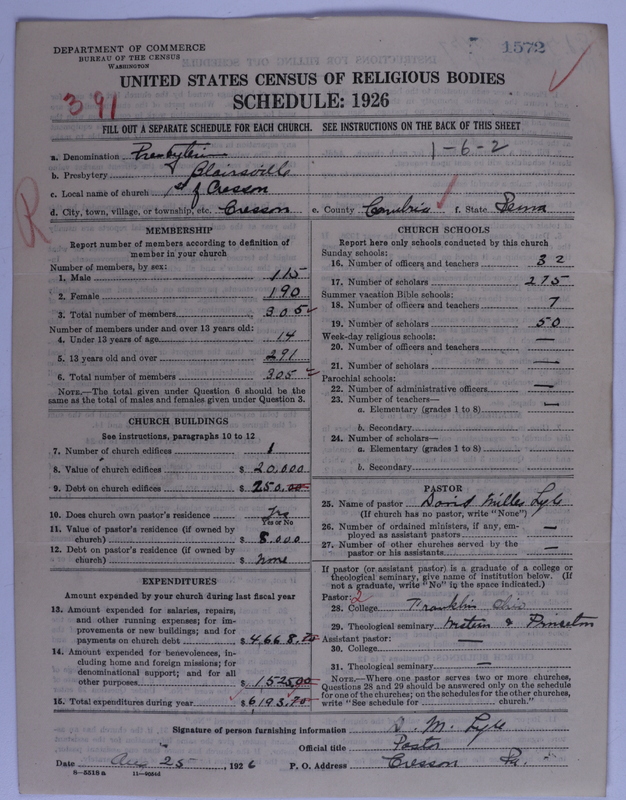 DEPARTMENT OF COMMERCE
BUREAU OF THE CENSUS
WASHINGTON
1572
UNITED STATES CENSUS OF RELIGIOUS BODIES
SCHEDULE: 1926
391
FILL OUT A SEPARATE SCHEDULE FOR EACH CHURCH. SEE INSTRUCTIONS ON THE BACK OF THIS SHEET
1-6-2
a. Denomination Presbyterian
b. Presbytery Blairsville
c. Local name of church 1st of Cresson
d. City, town, village, or township, etc. Cresson e. County Cambria f. State Penna
R
MEMBERSHIP
Report number of members according to definition of
member in your church
Number of members, by sex:
1. Male 115
2. Female 190
3. Total number of members 305
Number of members under and over 13 years old:
4. Under 13 years of age 14
5. 13 years old and over 291
6. Total number of members 305
NOTE.—The total given under Question 6 should be the
same as the total of males and females given under Question 3.
CHURCH BUILDINGS
See instructions, paragraphs 10 to 12
7. Number of church edifices 1
8. Value of church edifices $ 20,000
9. Debt on church edifices $ 250.00
10. Does church own pastor's residence? Yes
Yes or No
11. Value of pastor's residence (if owned by
church) $ 8,000
12. Debt on pastor's residence (if owned by
church) $ None
EXPENDITURES
Amount expended by your church during last fiscal year
13. Amount expended for salaries, repairs,
and other running expenses; for im-
provements or new buildings; and for
payments on church debt $ 4,668.70
14. Amount expended for benevolences, in-
cluding home and foreign missions; for
denominational support; and for all
other purposes $ 1,525.00
15. Total expenditures during year $ 6193.70
CHURCH SCHOOLS
Report here only schools conducted by this church
Sunday schools:
16. Number of officers and teachers 32
17. Number of scholars 275
Summer vacation Bible schools:
18. Number of officers and teachers 7
19. Number of scholars 50
Week-day religious schools:
20. Number of officers and teachers —
21. Number of scholars —
Parochial schools:
22. Number of administrative officers —
23. Number of teachers—
a. Elementary (grades 1 to 8) —
b. Secondary
24. Number of scholars—
a. Elementary (grades 1 to 8)
b. Secondary
PASTOR
25. Name of pastor David Miller Lyle
(If church has no pastor, write "None")
26. Number of ordained ministers, if any, em-
ployed as assistant pastors —
27. Number of other churches served by the
pastor or his assistants —
If pastor (or assistant pastor) is a graduate of a college or
theological seminary, give name of institution below. (If
not a graduate, write "No" in the space indicated.)
Pastor: 2
28. College Franklin Ohio
29. Theological seminary Western & Princeton
Assistant pastor:
30. College —
31. Theological seminary —
NOTE.—Where one pastor serves two or more churches,
Questions 28 and 29 should be answered only on the schedule
for one of the churches; on the schedules for the other churches,
write "See schedule for church."
Signature of person furnishing information D. M. Lyle
Official title Pastor
Date Aug 25, 1926 P. O. Address Cresson Pa.
8—5518a 11—9054d